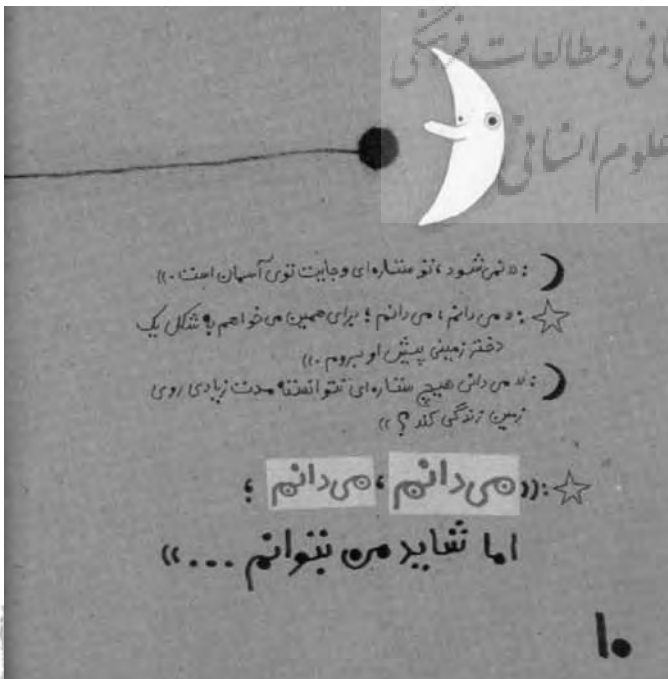 انی و مطالعات فرهنگی
علوم انسانی
: «نمی‌شود، تو ستاره‌ای و جایت توی آسمان است.»
: «می‌دانم، می‌دانم؛ برای همین می‌خواهم به شکل یک
دختر زمینی پیش او بروم.»
: «می‌دانی هیچ ستاره‌ای نتوانسته مدت زیادی روی
زمین زندگی کند؟»
: «می‌دانم، می‌دانم؛
اما شاید من بتوانم...»
۱۰